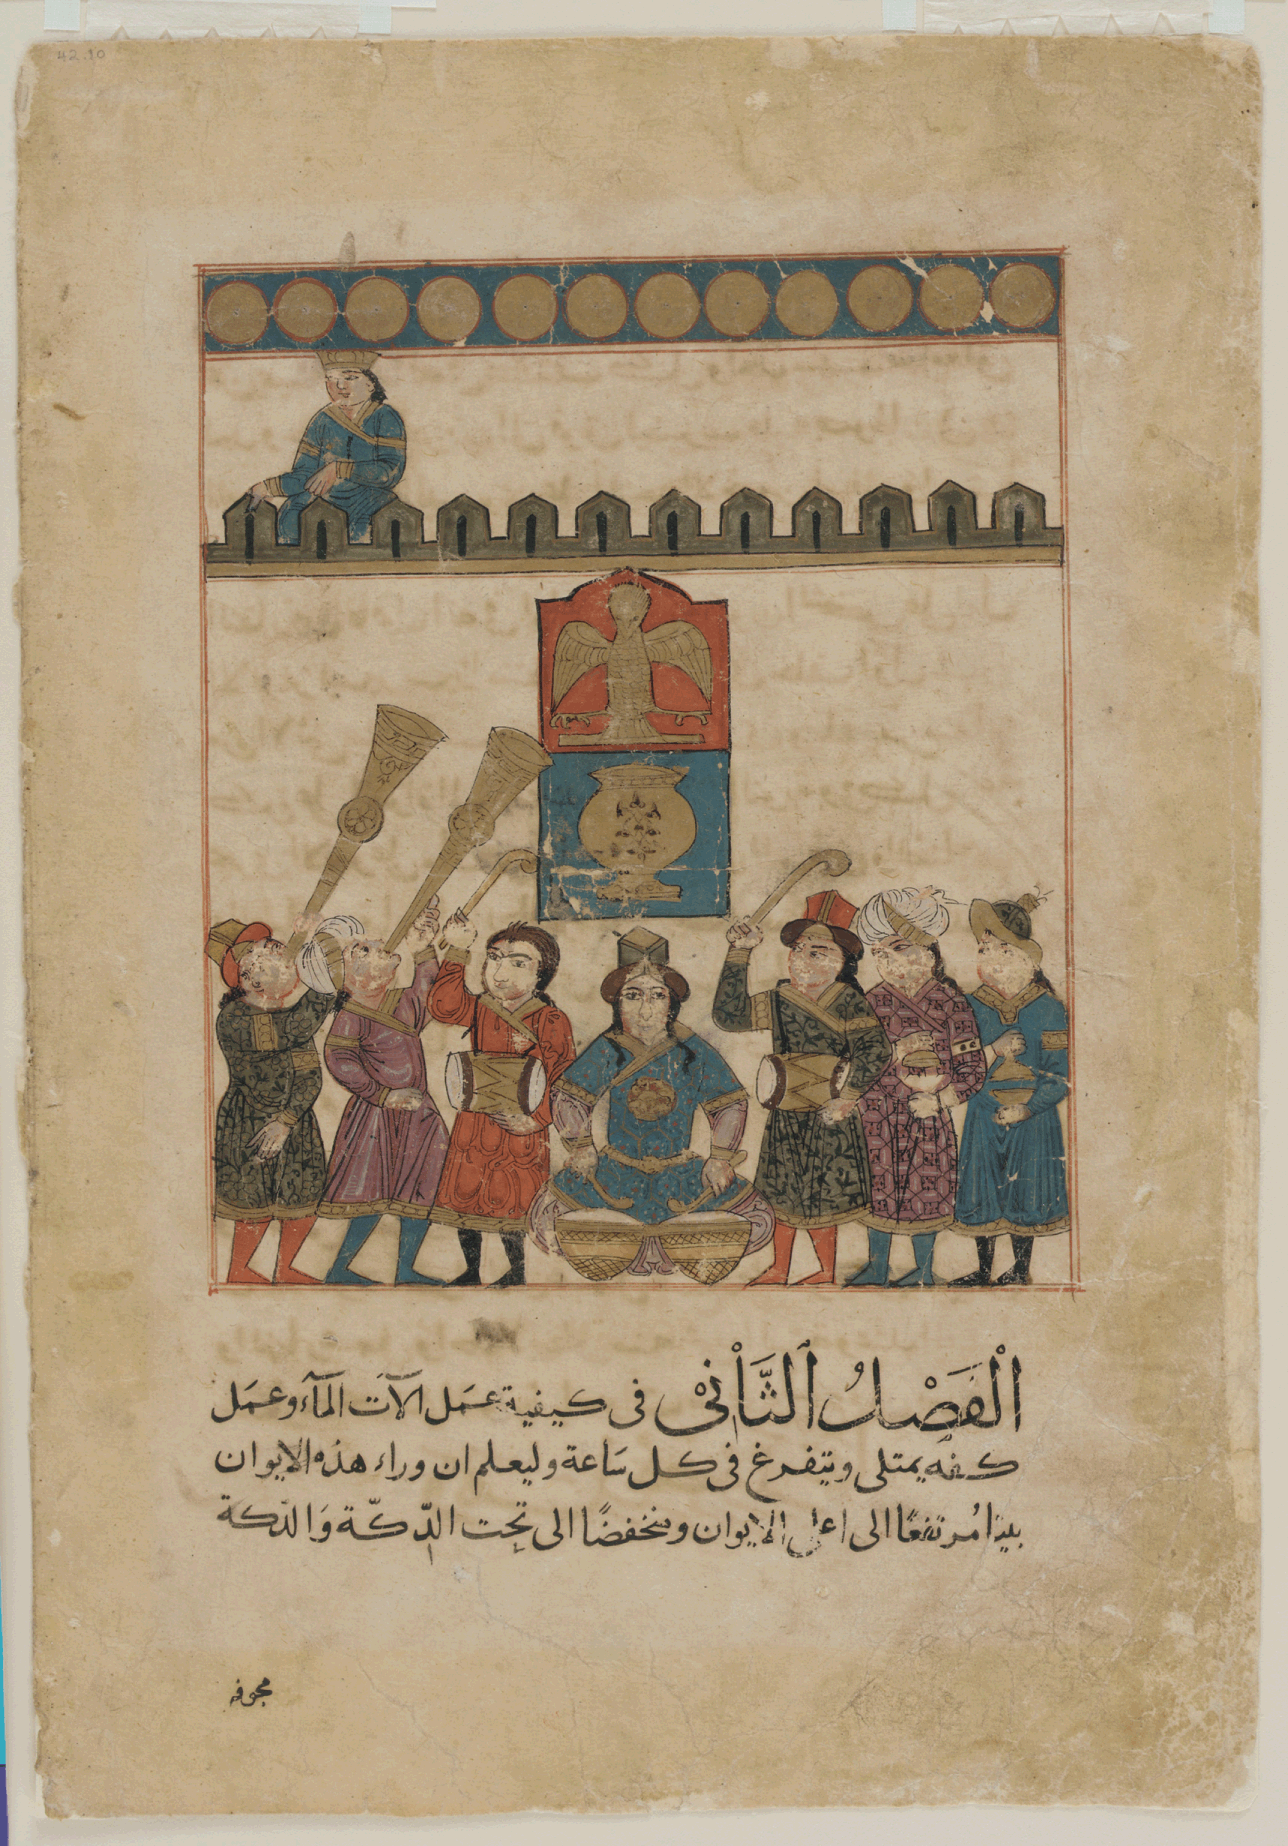 42.10
الْفَصْلُ الثَّانِي في كيفية عمَل الآت المآء وعمَل
كفه يمتلى ويتفرغ في كل سَاعة وليعلم ان وراء هذه الايوان
بيتا مُرتفعًا الى اعلى الايوان ومنخفضًا الى تحِت الدّكّة وَالدكة
مجوفه